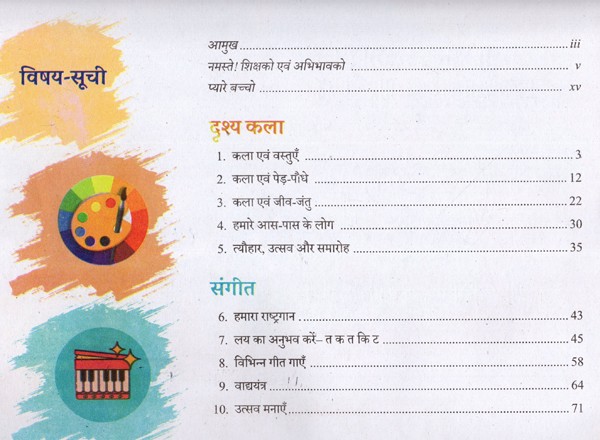 विषय-सूची
आमुख ... iii
नमस्ते! शिक्षको एवं अभिभावको ... v
प्यारे बच्चो ... xv
दृश्य कला
1. कला एवं वस्तुएँ ... 3
2. कला एवं पेड़-पौधे ... 12
3. कला एवं जीव-जंतु ... 22
4. हमारे आस-पास के लोग ... 30
5. त्यौहार, उत्सव और समारोह ... 35
संगीत
6. हमारा राष्ट्रगान ... 43
7. लय का अनुभव करें– त क त कि ट ... 45
8. विभिन्न गीत गाएँ ... 58
9. वाद्ययंत्र ... 64
10. उत्सव मनाएँ ... 71